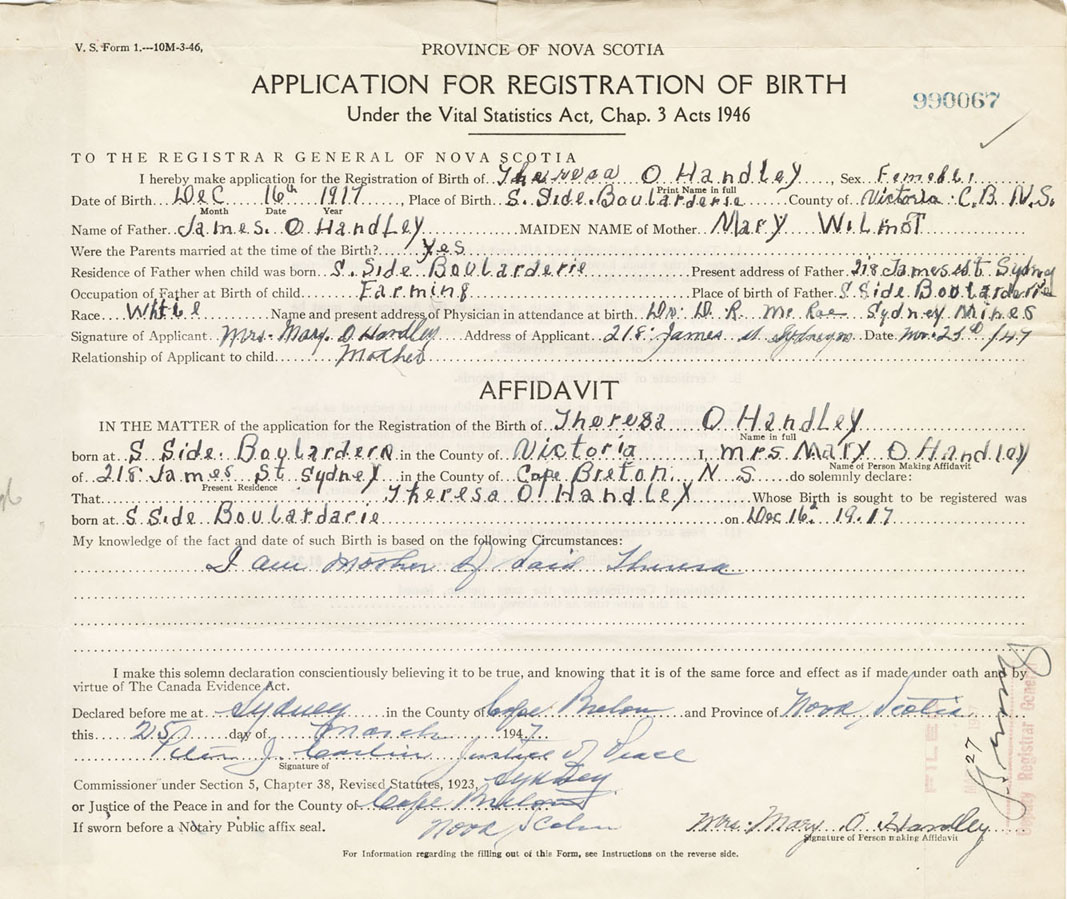 V. S. Form 1.---10M-3-46,
PROVINCE OF NOVA SCOTIA
APPLICATION FOR REGISTRATION OF BIRTH
990067
Under the Vital Statistics Act, Chap. 3 Acts 1946
TO THE REGISTRAR GENERAL OF NOVA SCOTIA
I hereby make application for the Registration of Birth of Theresa O Handley, Sex Female
Print Name in full
Date of Birth Dec 16th 1917, Place of Birth S. Side Boularderie County of Victoria C.B. N.S.
Month Date Year
Name of Father James O Handley MAIDEN NAME of Mother Mary Wilmot
Were the Parents married at the time of the Birth? Yes
Residence of Father when child was born S. Side Boularderie Present address of Father 218 James St Sydney
Occupation of Father at Birth of child Farming Place of birth of Father S Side Boularderie
Race White Name and present address of Physician in attendance at birth Dr. D. R. Mc Rae Sydney Mines
Signature of Applicant Mrs. Mary O Handley Address of Applicant 218 James st Date /47
Relationship of Applicant to child Mother
AFFIDAVIT
IN THE MATTER of the application for the Registration of the Birth of Theresa O Handley
Name in full
born at S Side Boulardera in the County of Victoria I, mrs Mary O Handley
Name of Person Making Affidavit
of 218 James St Sydney in the County of Cape Breton N S do solemnly declare:
Present Residence
That Theresa O Handley Whose Birth is sought to be registered was
born at S Side Boulardarie on Dec 16th 1917
My knowledge of the fact and date of such Birth is based on the following Circumstances:
I am mother of said Theresa
I make this solemn declaration conscientiously believing it to be true, and knowing that it is of the same force and effect as if made under oath and by
virtue of The Canada Evidence Act.
Declared before me at Sydney in the County of Cape Breton and Province of Nova Scotia
this 25 day of March 1947
J. Justice of Peace
Signature of
Commissioner under Section 5, Chapter 38, Revised Statutes, 1923, Sydney
or Justice of the Peace in and for the County of Cape Breton
If sworn before a Notary Public affix seal. Nova Scotia
Mrs. Mary O Handley
Signature of Person making Affidavit
For Information regarding the filling out of this Form, see Instructions on the reverse side.
FILED
27
Deputy Registrar General